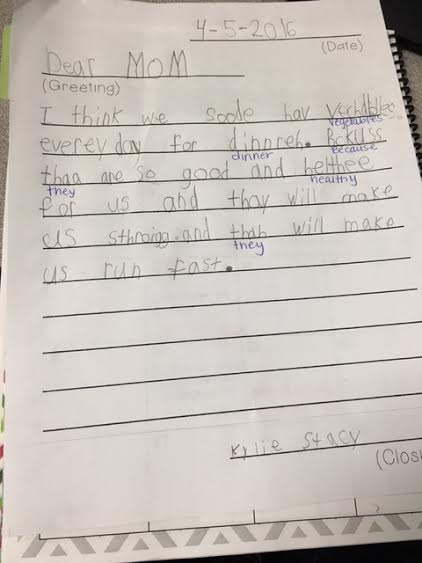 4-5-2016
(Date)
Dear MOM
(Greeting)
I think we soode hav vechtbles
vegetables
everey day for dinnreh. Bekuss
dinner because
thaa are so good and helthee
they healthy
for us and thay will make
us sthroigg. and thah will make
they
us run fast.
Kylie Stacy
(Clos